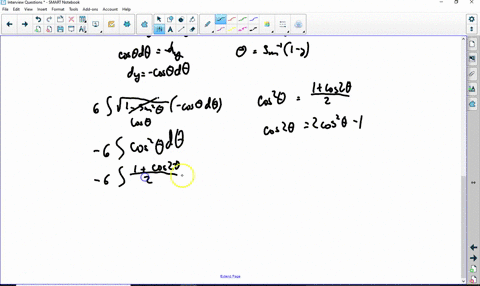 Interview Questions * - SMART Notebook
File Edit View Insert Format Tools Add-ons Help Account
cosθdθ = -dy
θ = Sin⁻¹(1-y)
dy = -cosθdθ
6∫√(1-Sin²θ) (-cosθdθ)
cosθ
cos²θ = (1+cos2θ)/2
cos2θ = 2cos²θ -1
-6∫cos²θdθ
-6∫(1+cos2θ)/2
Extend Page